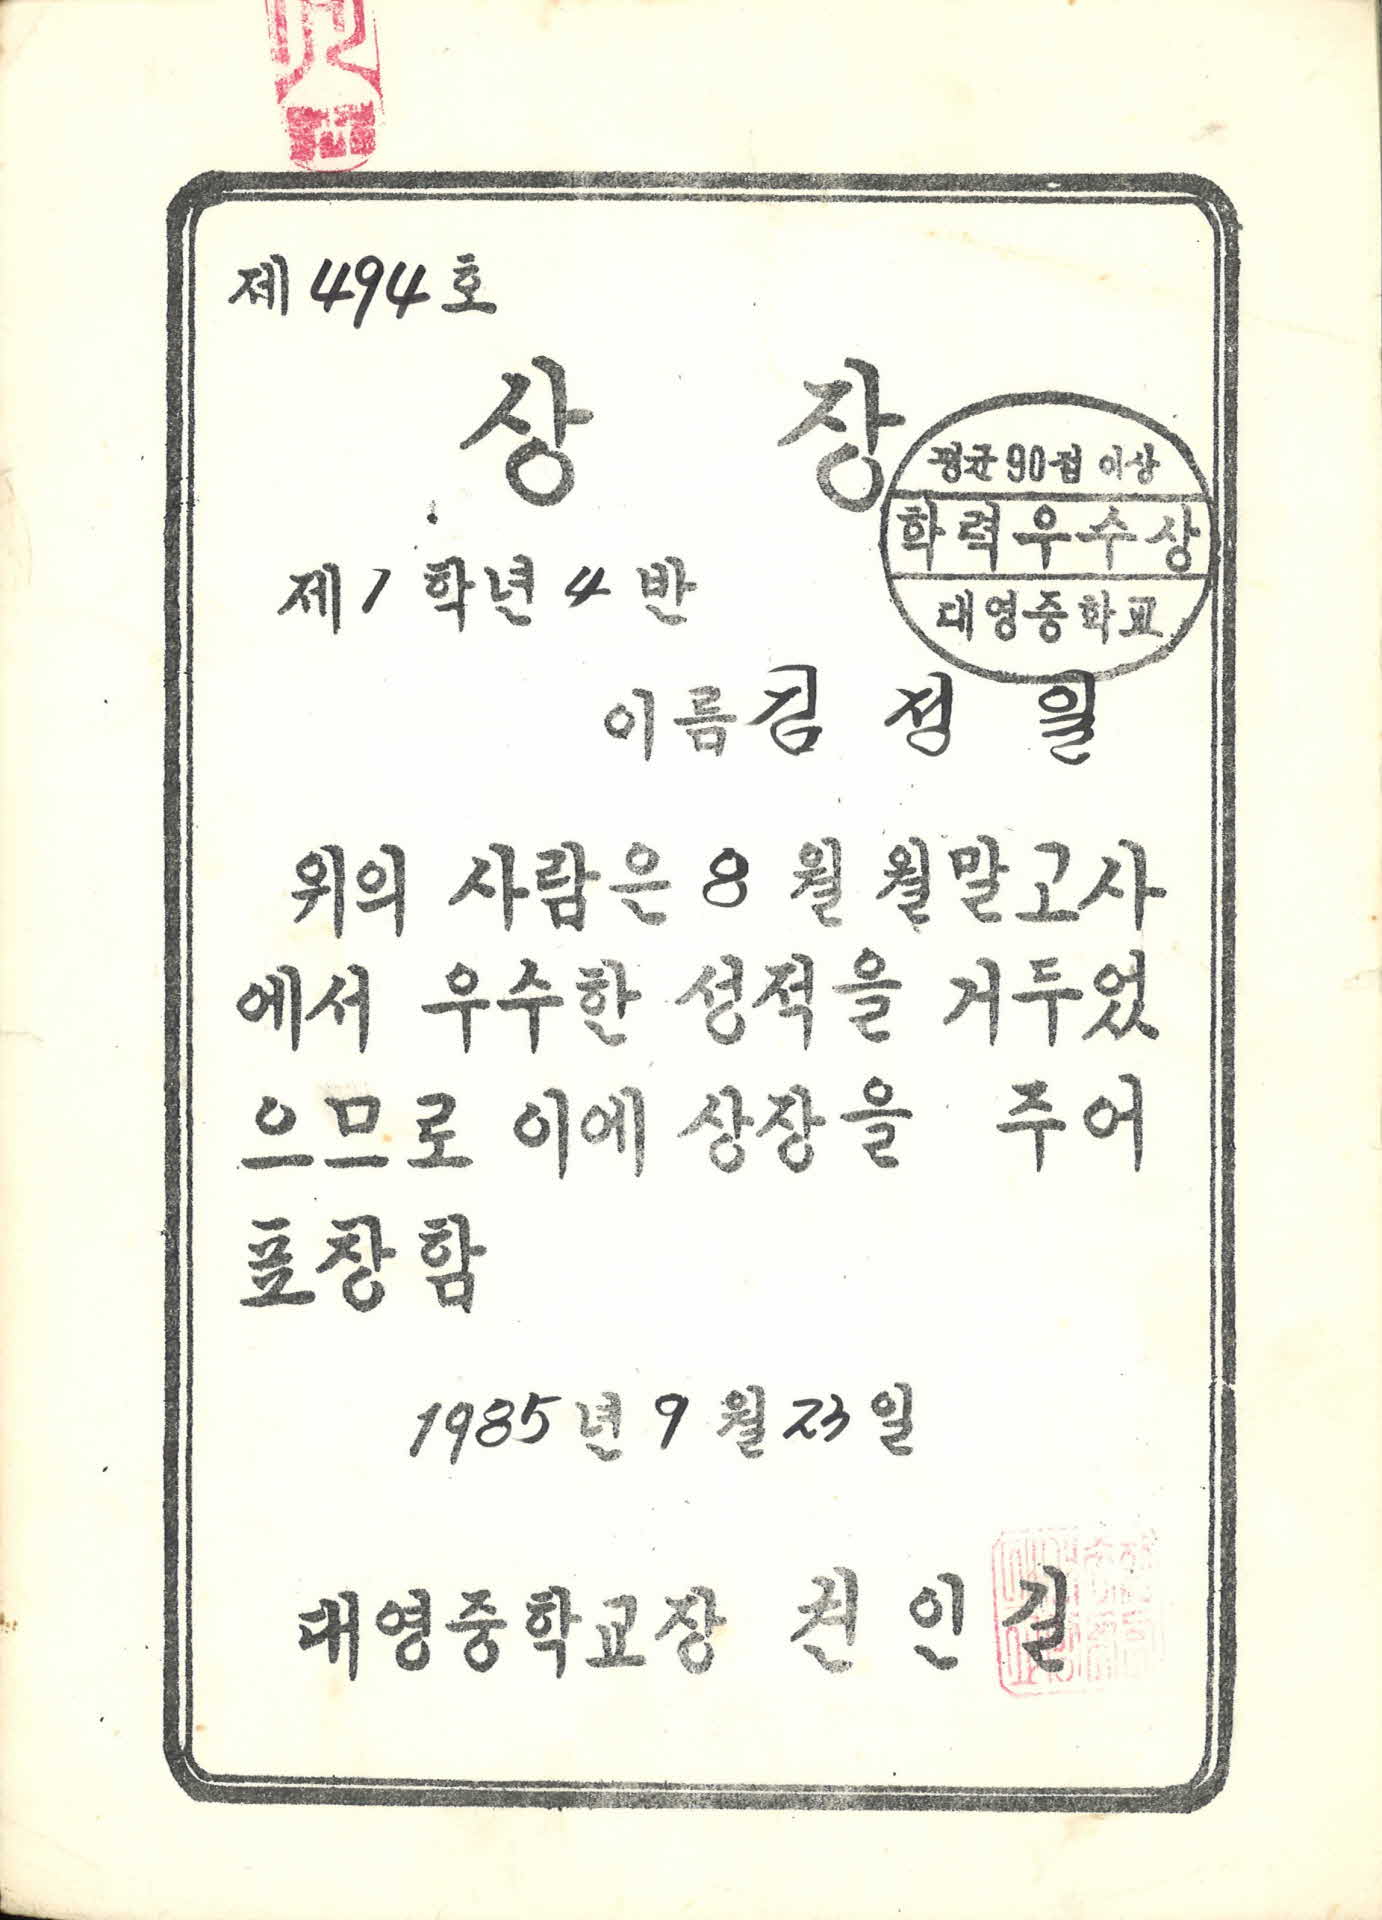 제 494 호
상 장
평균 90점 이상
학력우수상
대영중학교
제 1 학년 4 반
이름 김 정 일
위의 사람은 8 월 월말고사
에서 우수한 성적을 거두었
으므로 이에 상장을 주어
표창함
1985 년 9 월 23 일
대영중학교장 권 인 길